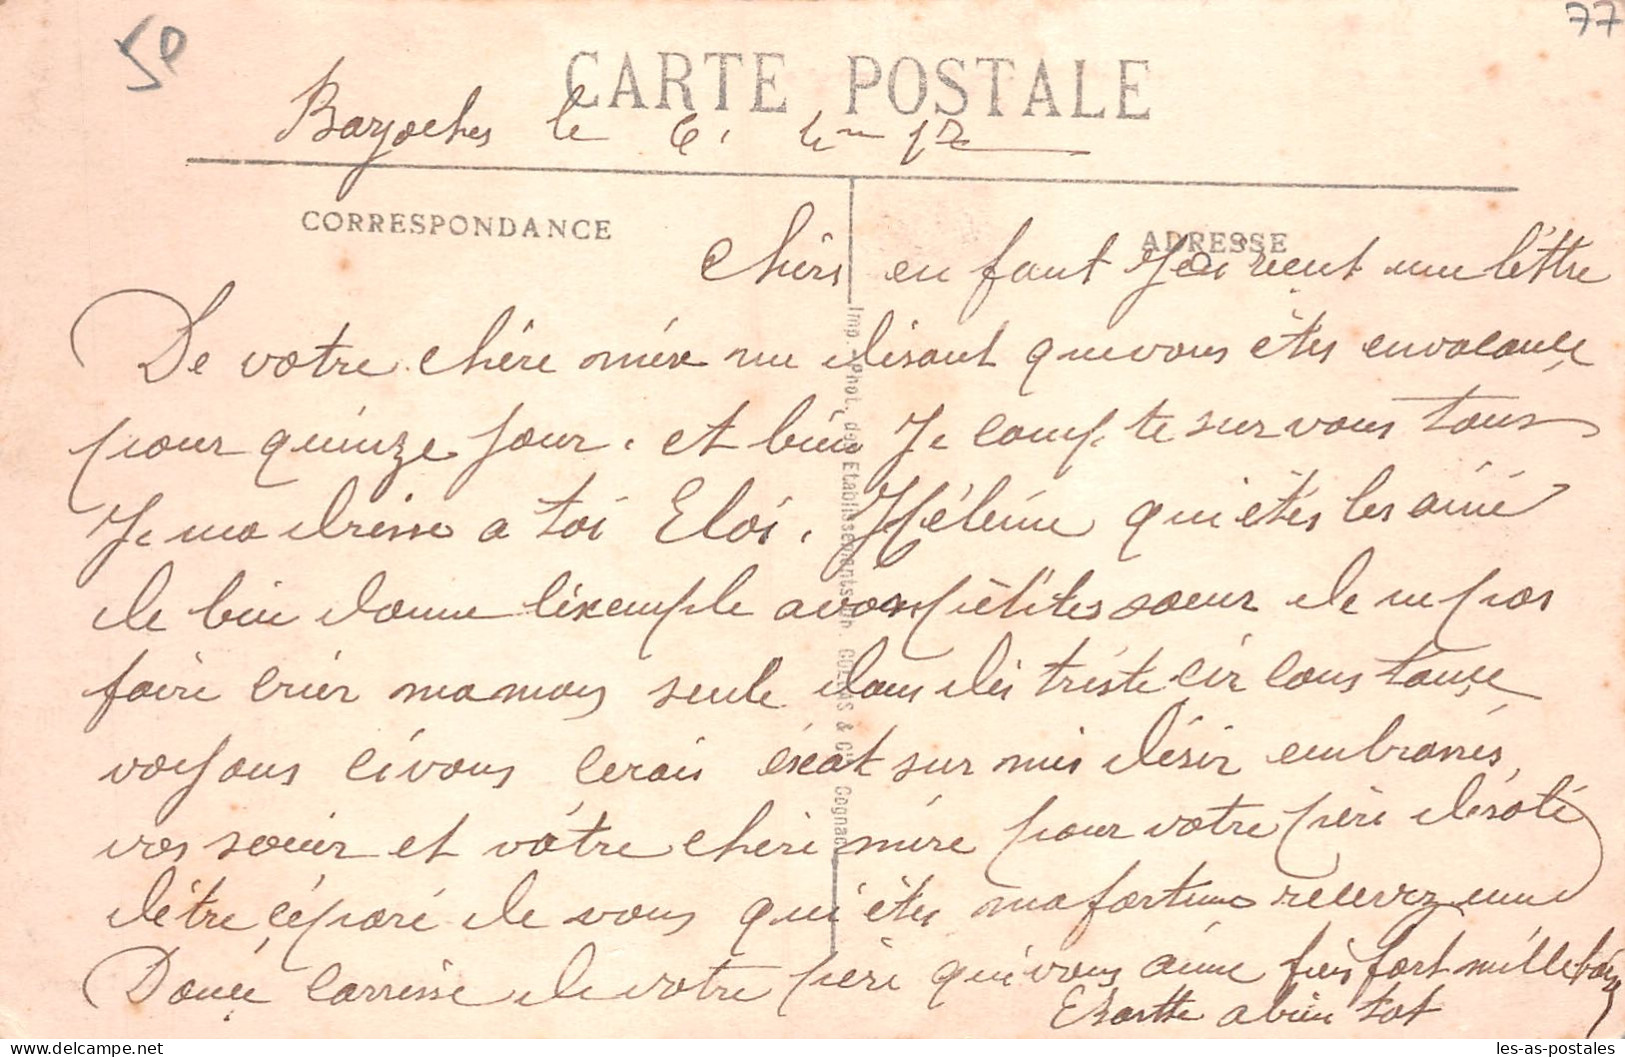 50
77
CARTE POSTALE
Bazoches le 6. 4 12
CORRESPONDANCE
ADRESSE
Chérs en fant Jai recut une léttre
De votre chére mére me disant que vous êtes envacançe
pour quinze Jour. et bien Je comp te sur vous tous
Je ma dresse a toi Eloi. Héléne qui étés les ainé
de bien donne l'exemple avos pètites soeur de ne pas
faire criér maman seule dans des triste cir constançe
voyons ci vous cerais éxcat sur mes désir embrassés,
vos soeur et vôtre chére mére pour votre pére désolé
d'être çéparé de vous qui êtes ma fortune recevez une
Douce carresse de votre pére qui vous aime fort mille fois
a bien tot
Imp. Phot. des Etablissements Un. COLLAS & Cie Cognac
les-as-postales
delcampe.net